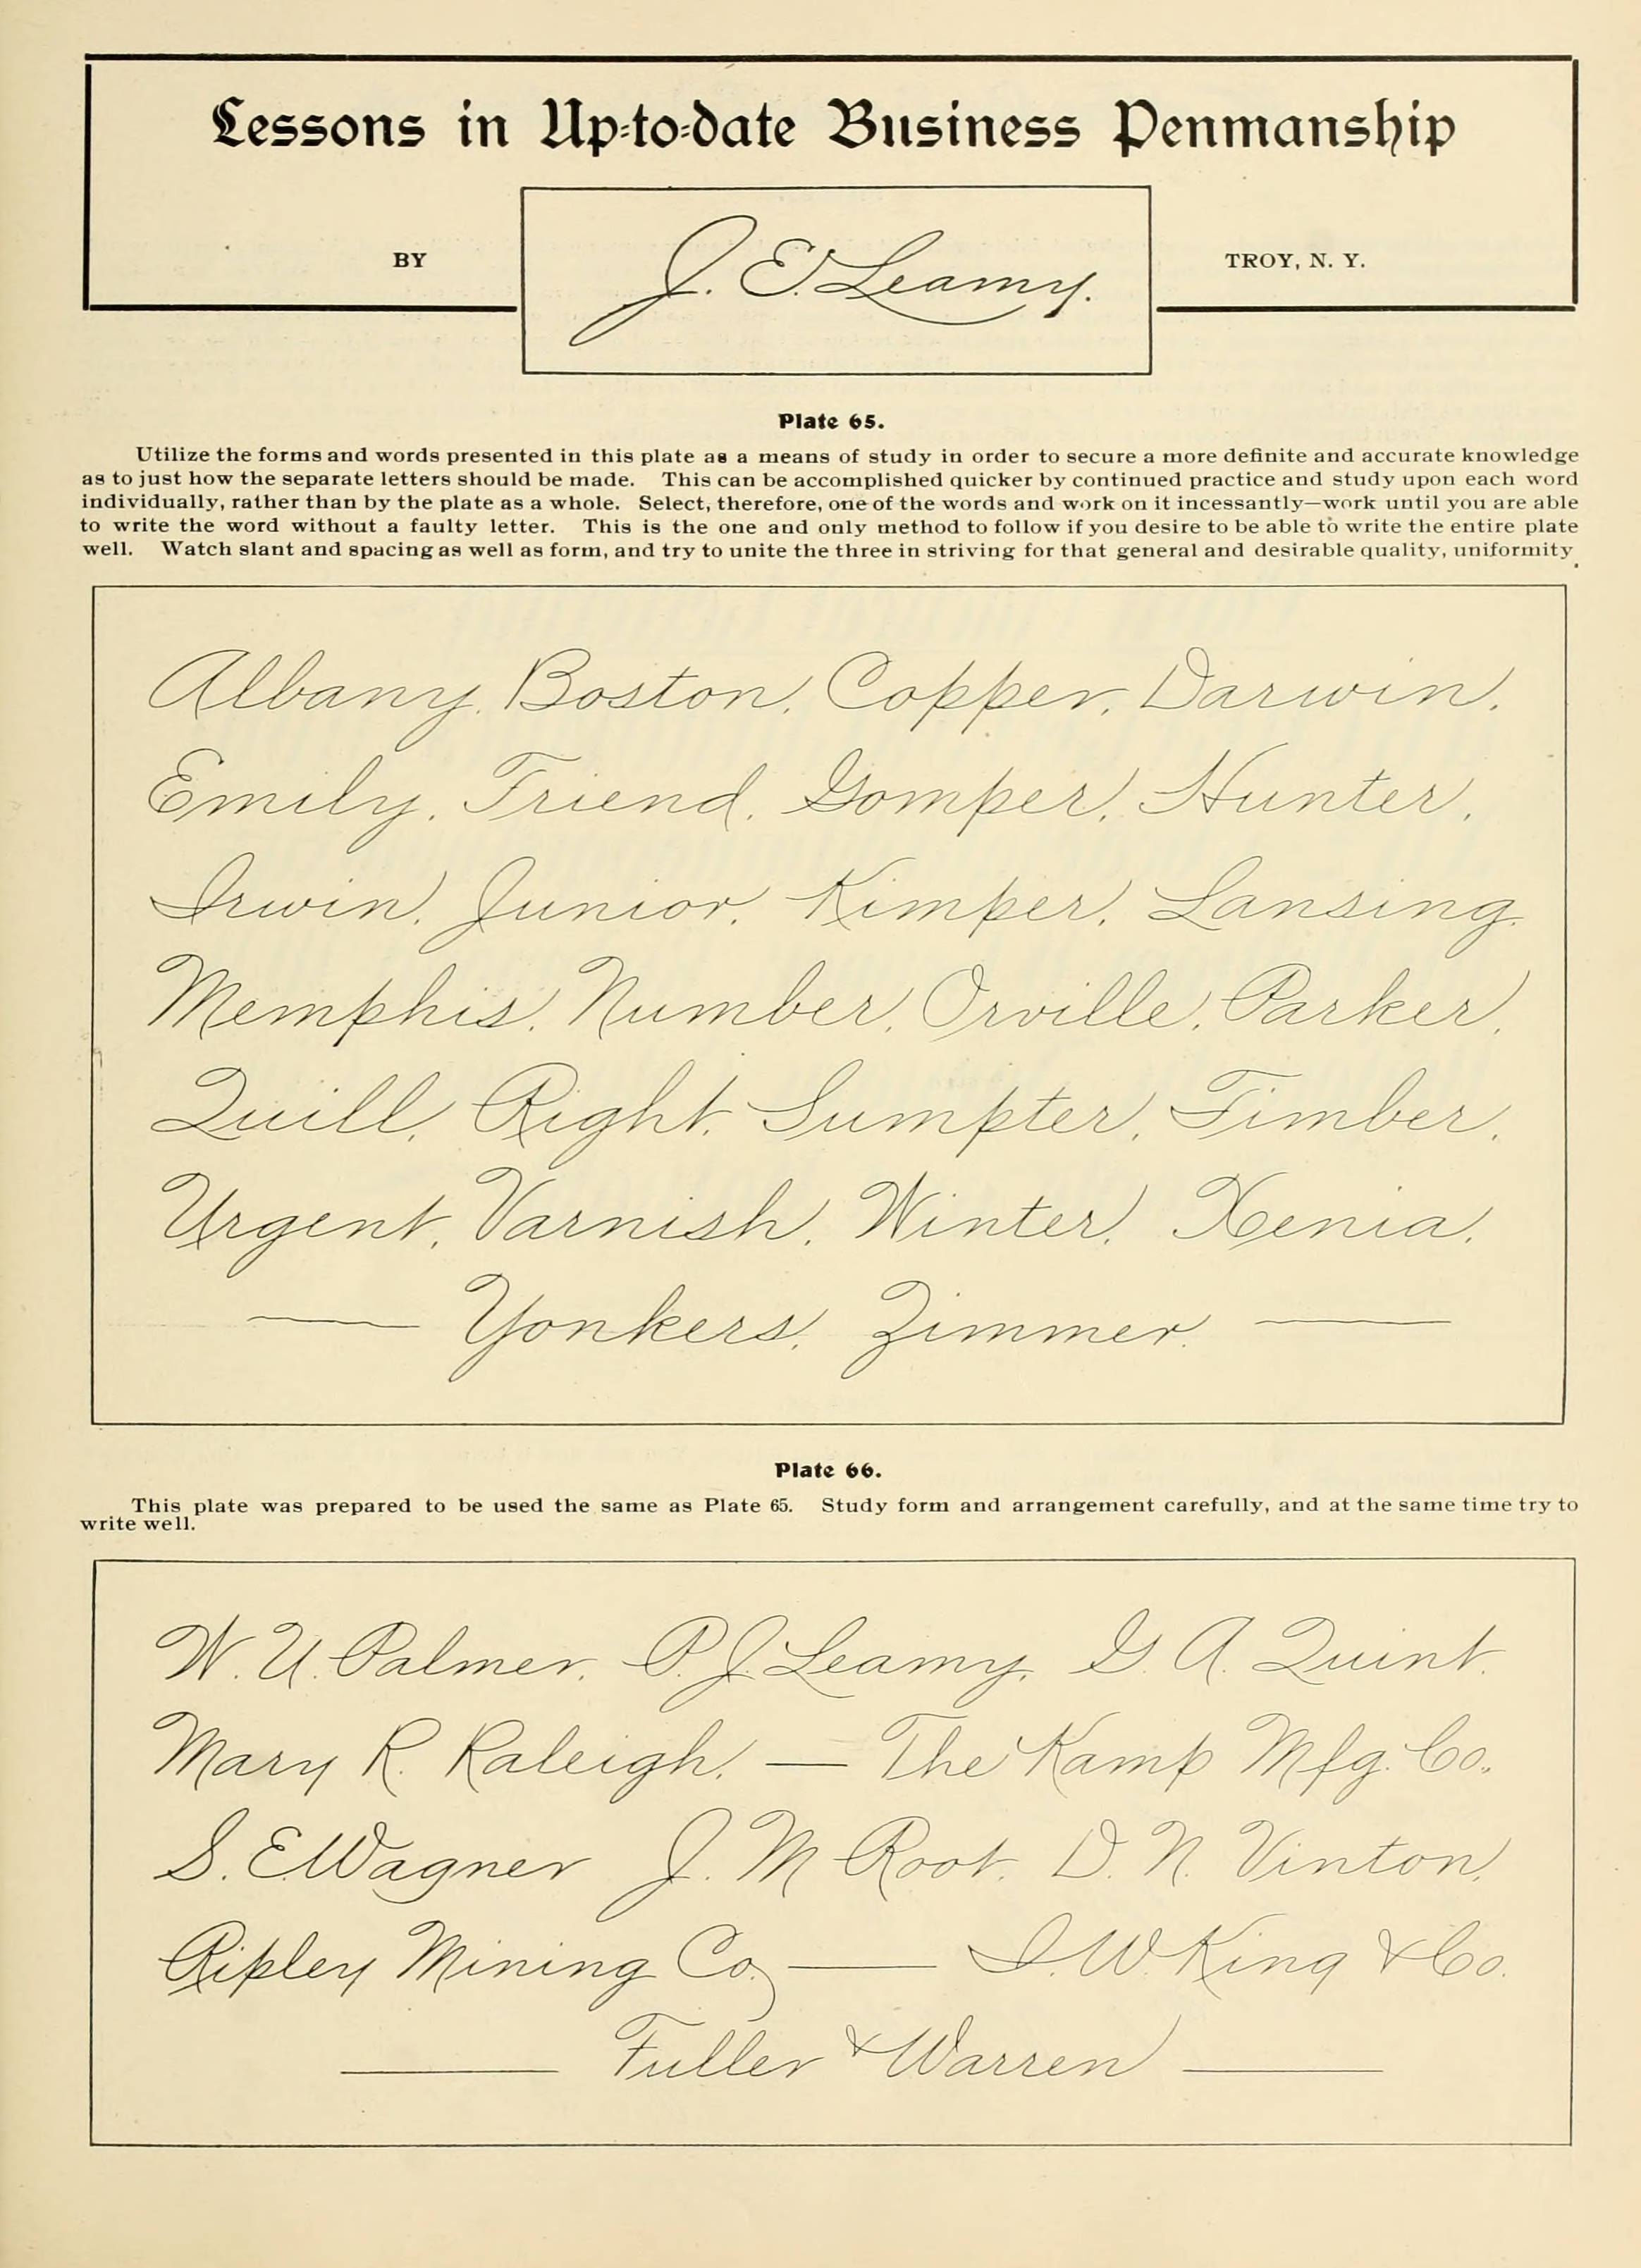 Lessons in Up-to-date Business Penmanship
BY
J. E. Leamy.
TROY, N. Y.
Plate 65.
Utilize the forms and words presented in this plate as a means of study in order to secure a more definite and accurate knowledge
as to just how the separate letters should be made. This can be accomplished quicker by continued practice and study upon each word
individually, rather than by the plate as a whole. Select, therefore, one of the words and work on it incessantly—work until you are able
to write the word without a faulty letter. This is the one and only method to follow if you desire to be able to write the entire plate
well. Watch slant and spacing as well as form, and try to unite the three in striving for that general and desirable quality, uniformity.
Albany, Boston, Copper, Darwin,
Emily, Friend, Gomper, Hunter,
Irwin, Junior, Kimper, Lansing,
Memphis, Number, Orville, Parker,
Quill, Right, Sumpter, Timber,
Urgent, Varnish, Winter, Xenia,
— Yonkers, Zimmer. —
Plate 66.
This plate was prepared to be used the same as Plate 65. Study form and arrangement carefully, and at the same time try to
write well.
W. U. Palmer. P. J. Leamy. G. A. Quint.
Mary R. Raleigh. — The Kamp Mfg. Co.
S. E. Wagner J. M Root. D. N. Vinton,
Ripley Mining Co. — I. W. King & Co.
— Fuller & Warren —